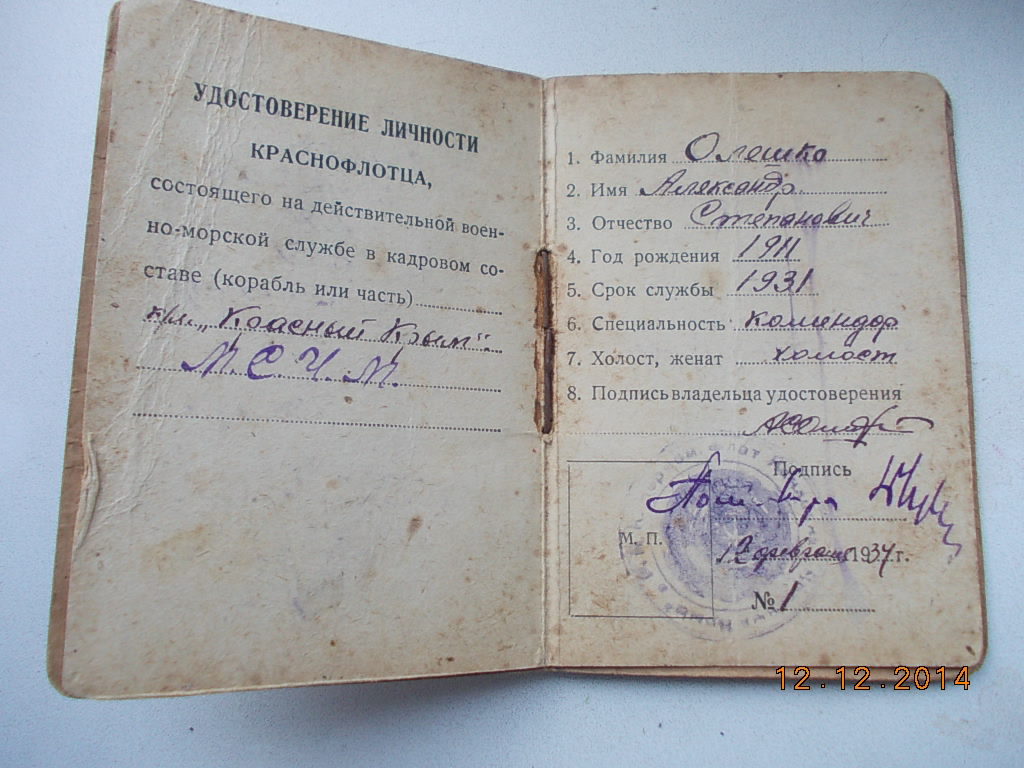 УДОСТОВЕРЕНИЕ ЛИЧНОСТИ
КРАСНОФЛОТЦА,
состоящего на действительной воен-
но-морской службе в кадровом со-
ставе (корабль или часть)
"Красный Крым".
М. С. Ч. М.
1. Фамилия Олешко
2. Имя Александр.
3. Отчество Степанович
4. Год рождения 1911
5. Срок службы 1931
6. Специальность комендор
7. Холост, женат холост
8. Подпись владельца удостоверения
Подпись
М. П.
12 февраля 1934 г.
№ 1
12.12.2014